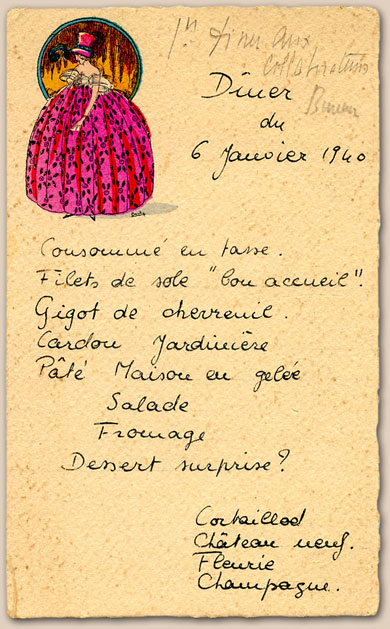 1er dîner aux
collaborateurs
Bureau
Dîner
du
6 Janvier 1940
Consommé en tasse.
Filets de sole "bon accueil".
Gigot de chevreuil.
Cardon Jardinière
Pâté Maison en gelée
Salade
Fromage
Dessert surprise?
Cortaillod
Château neuf.
Fleurie
Champagne.